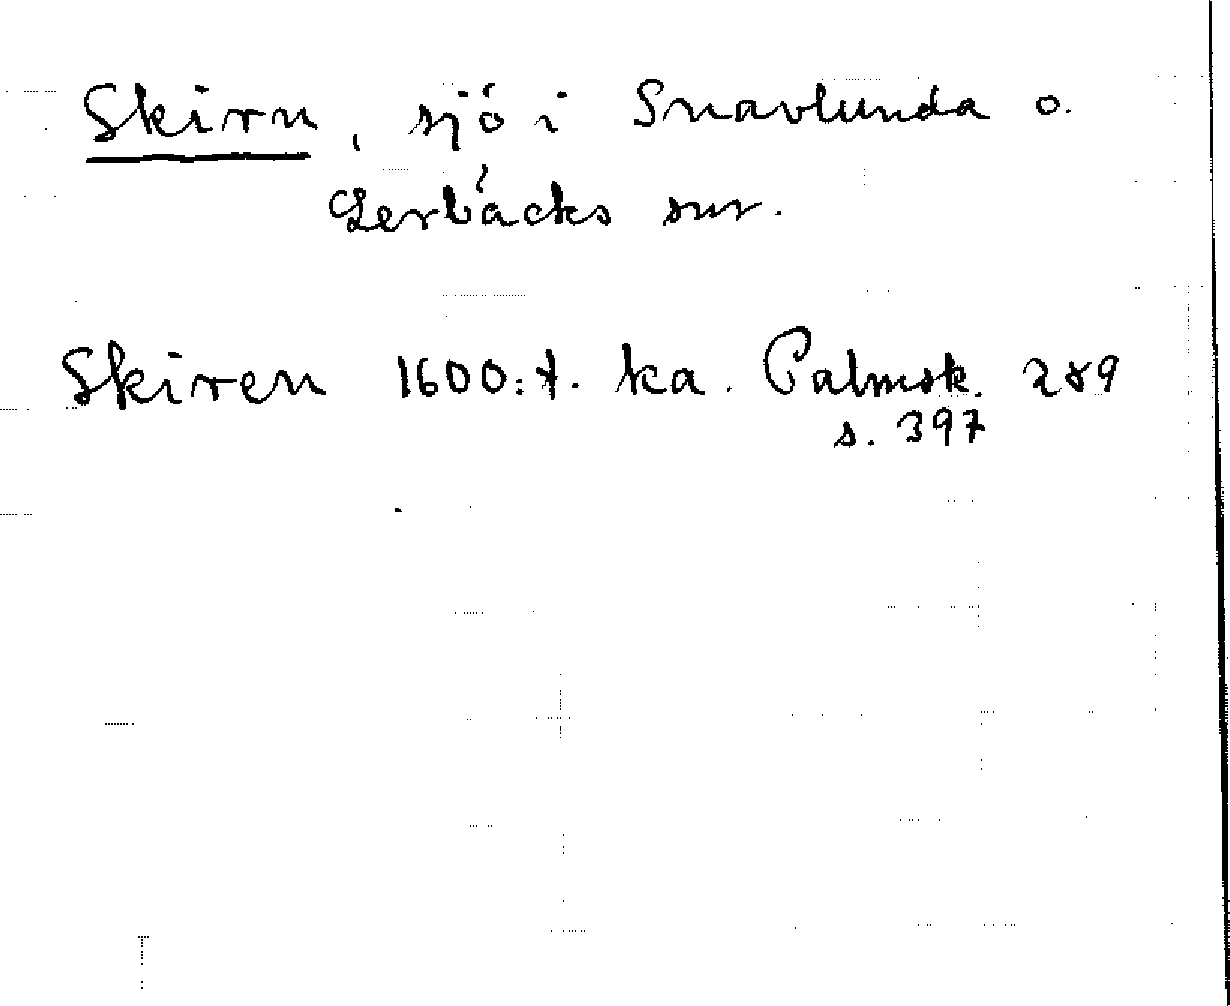 Skirn, sjö i Snavlunda o.
Lerbäcks snr.
Skiren 1600:t. ka. Palmsk. 289
s. 397